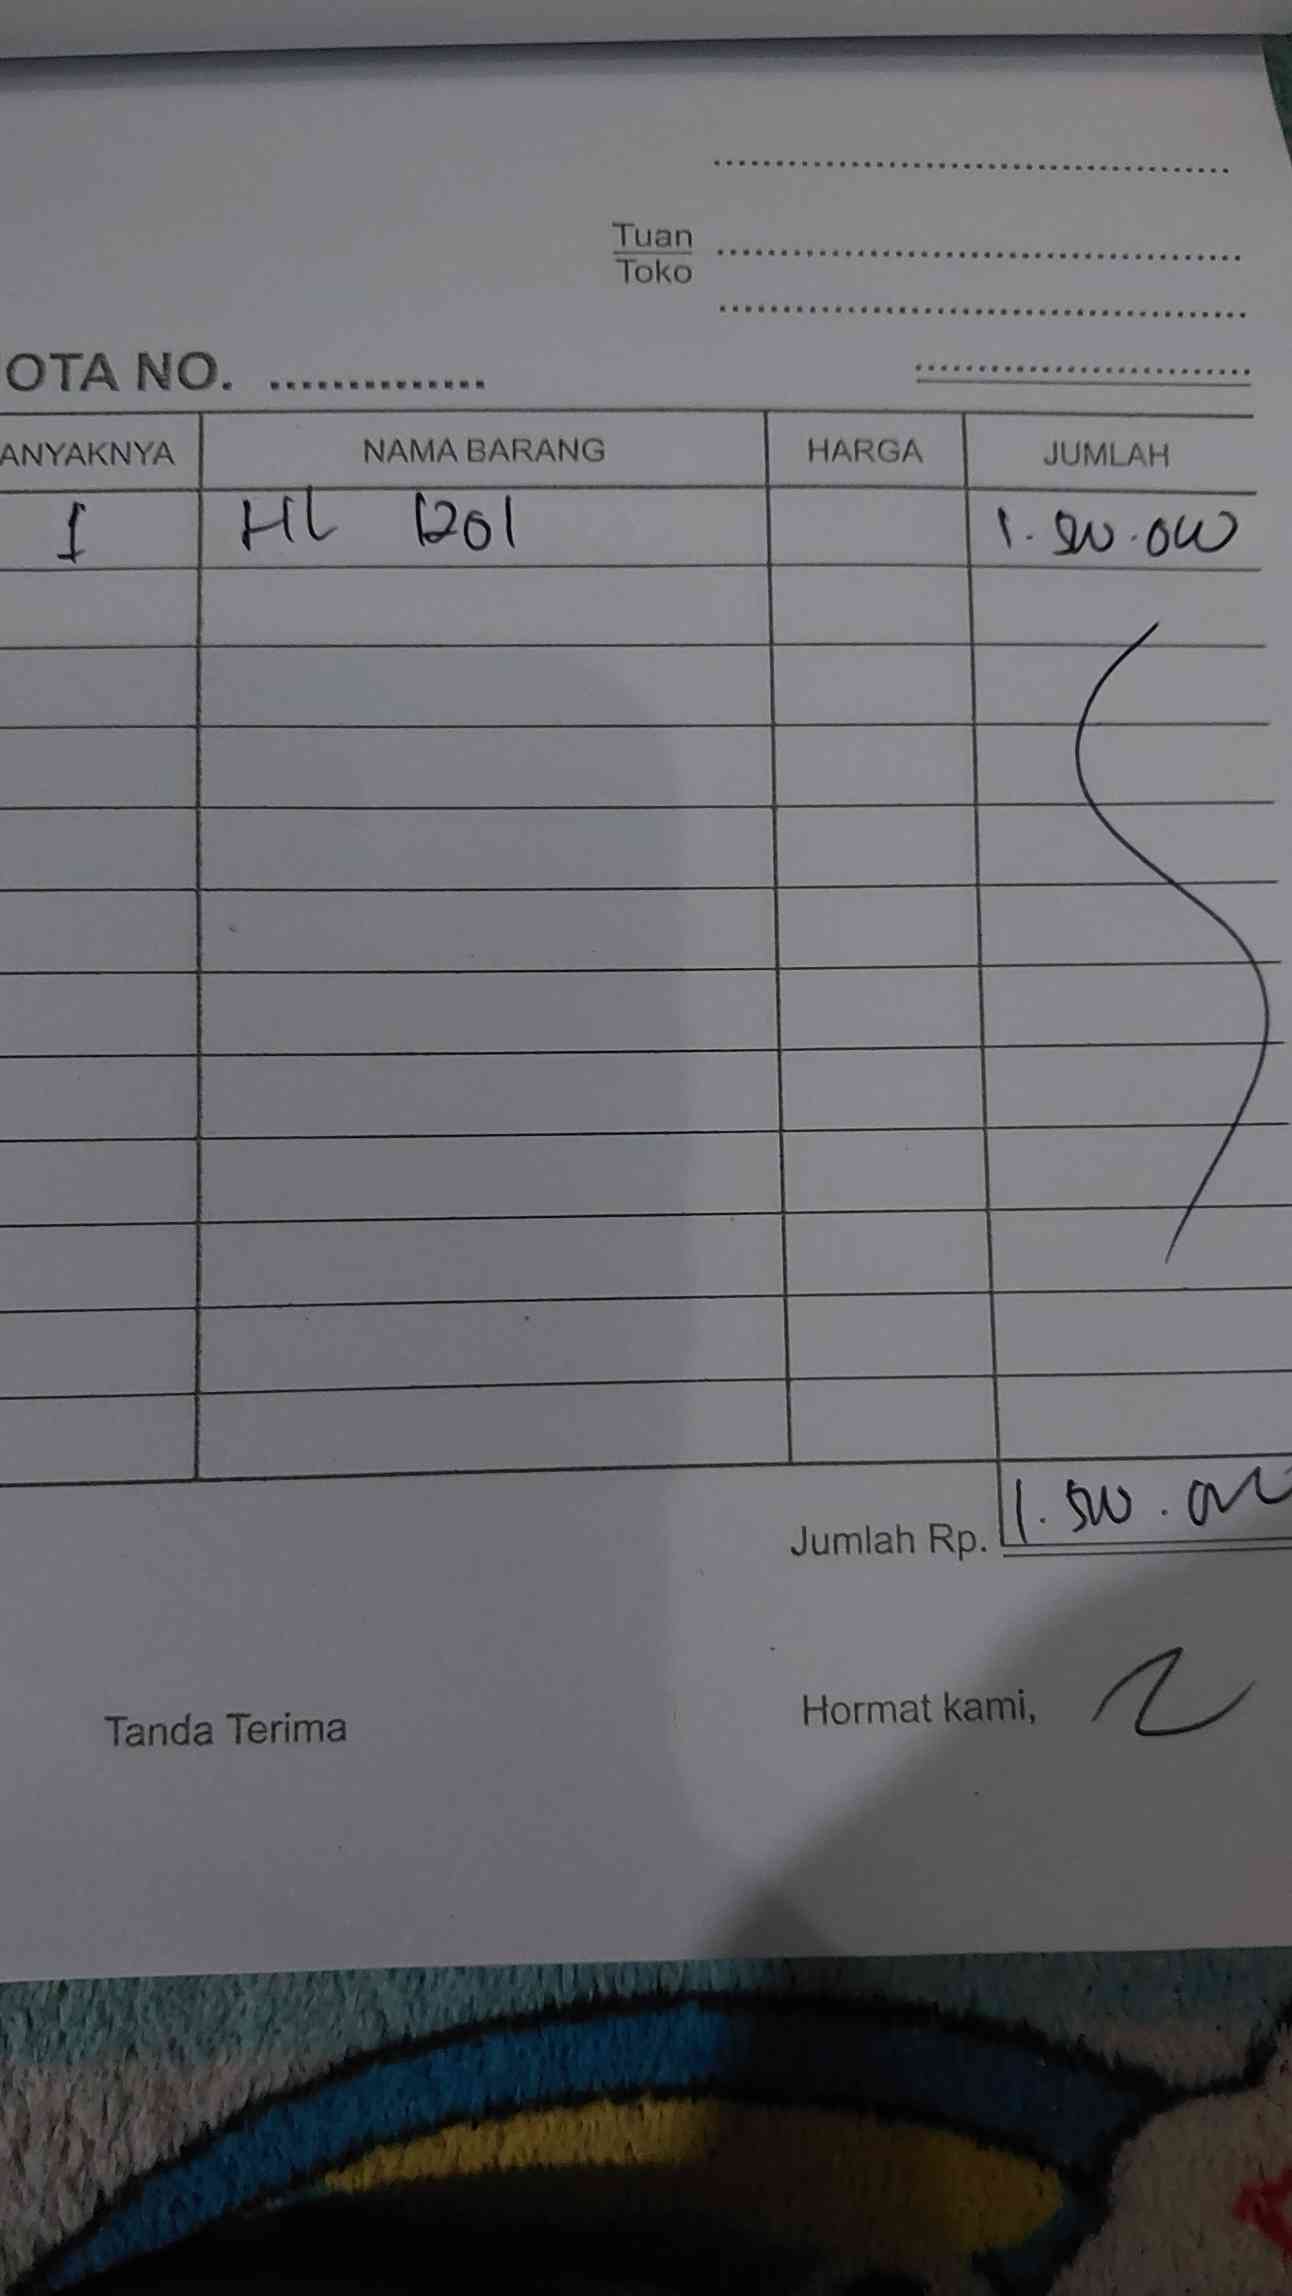 Tuan
Toko
OTA NO. ..............
ANYAKNYA NAMA BARANG HARGA JUMLAH
1 HL 1201 1.500.000
Jumlah Rp. 1.500.000
Tanda Terima Hormat kami,